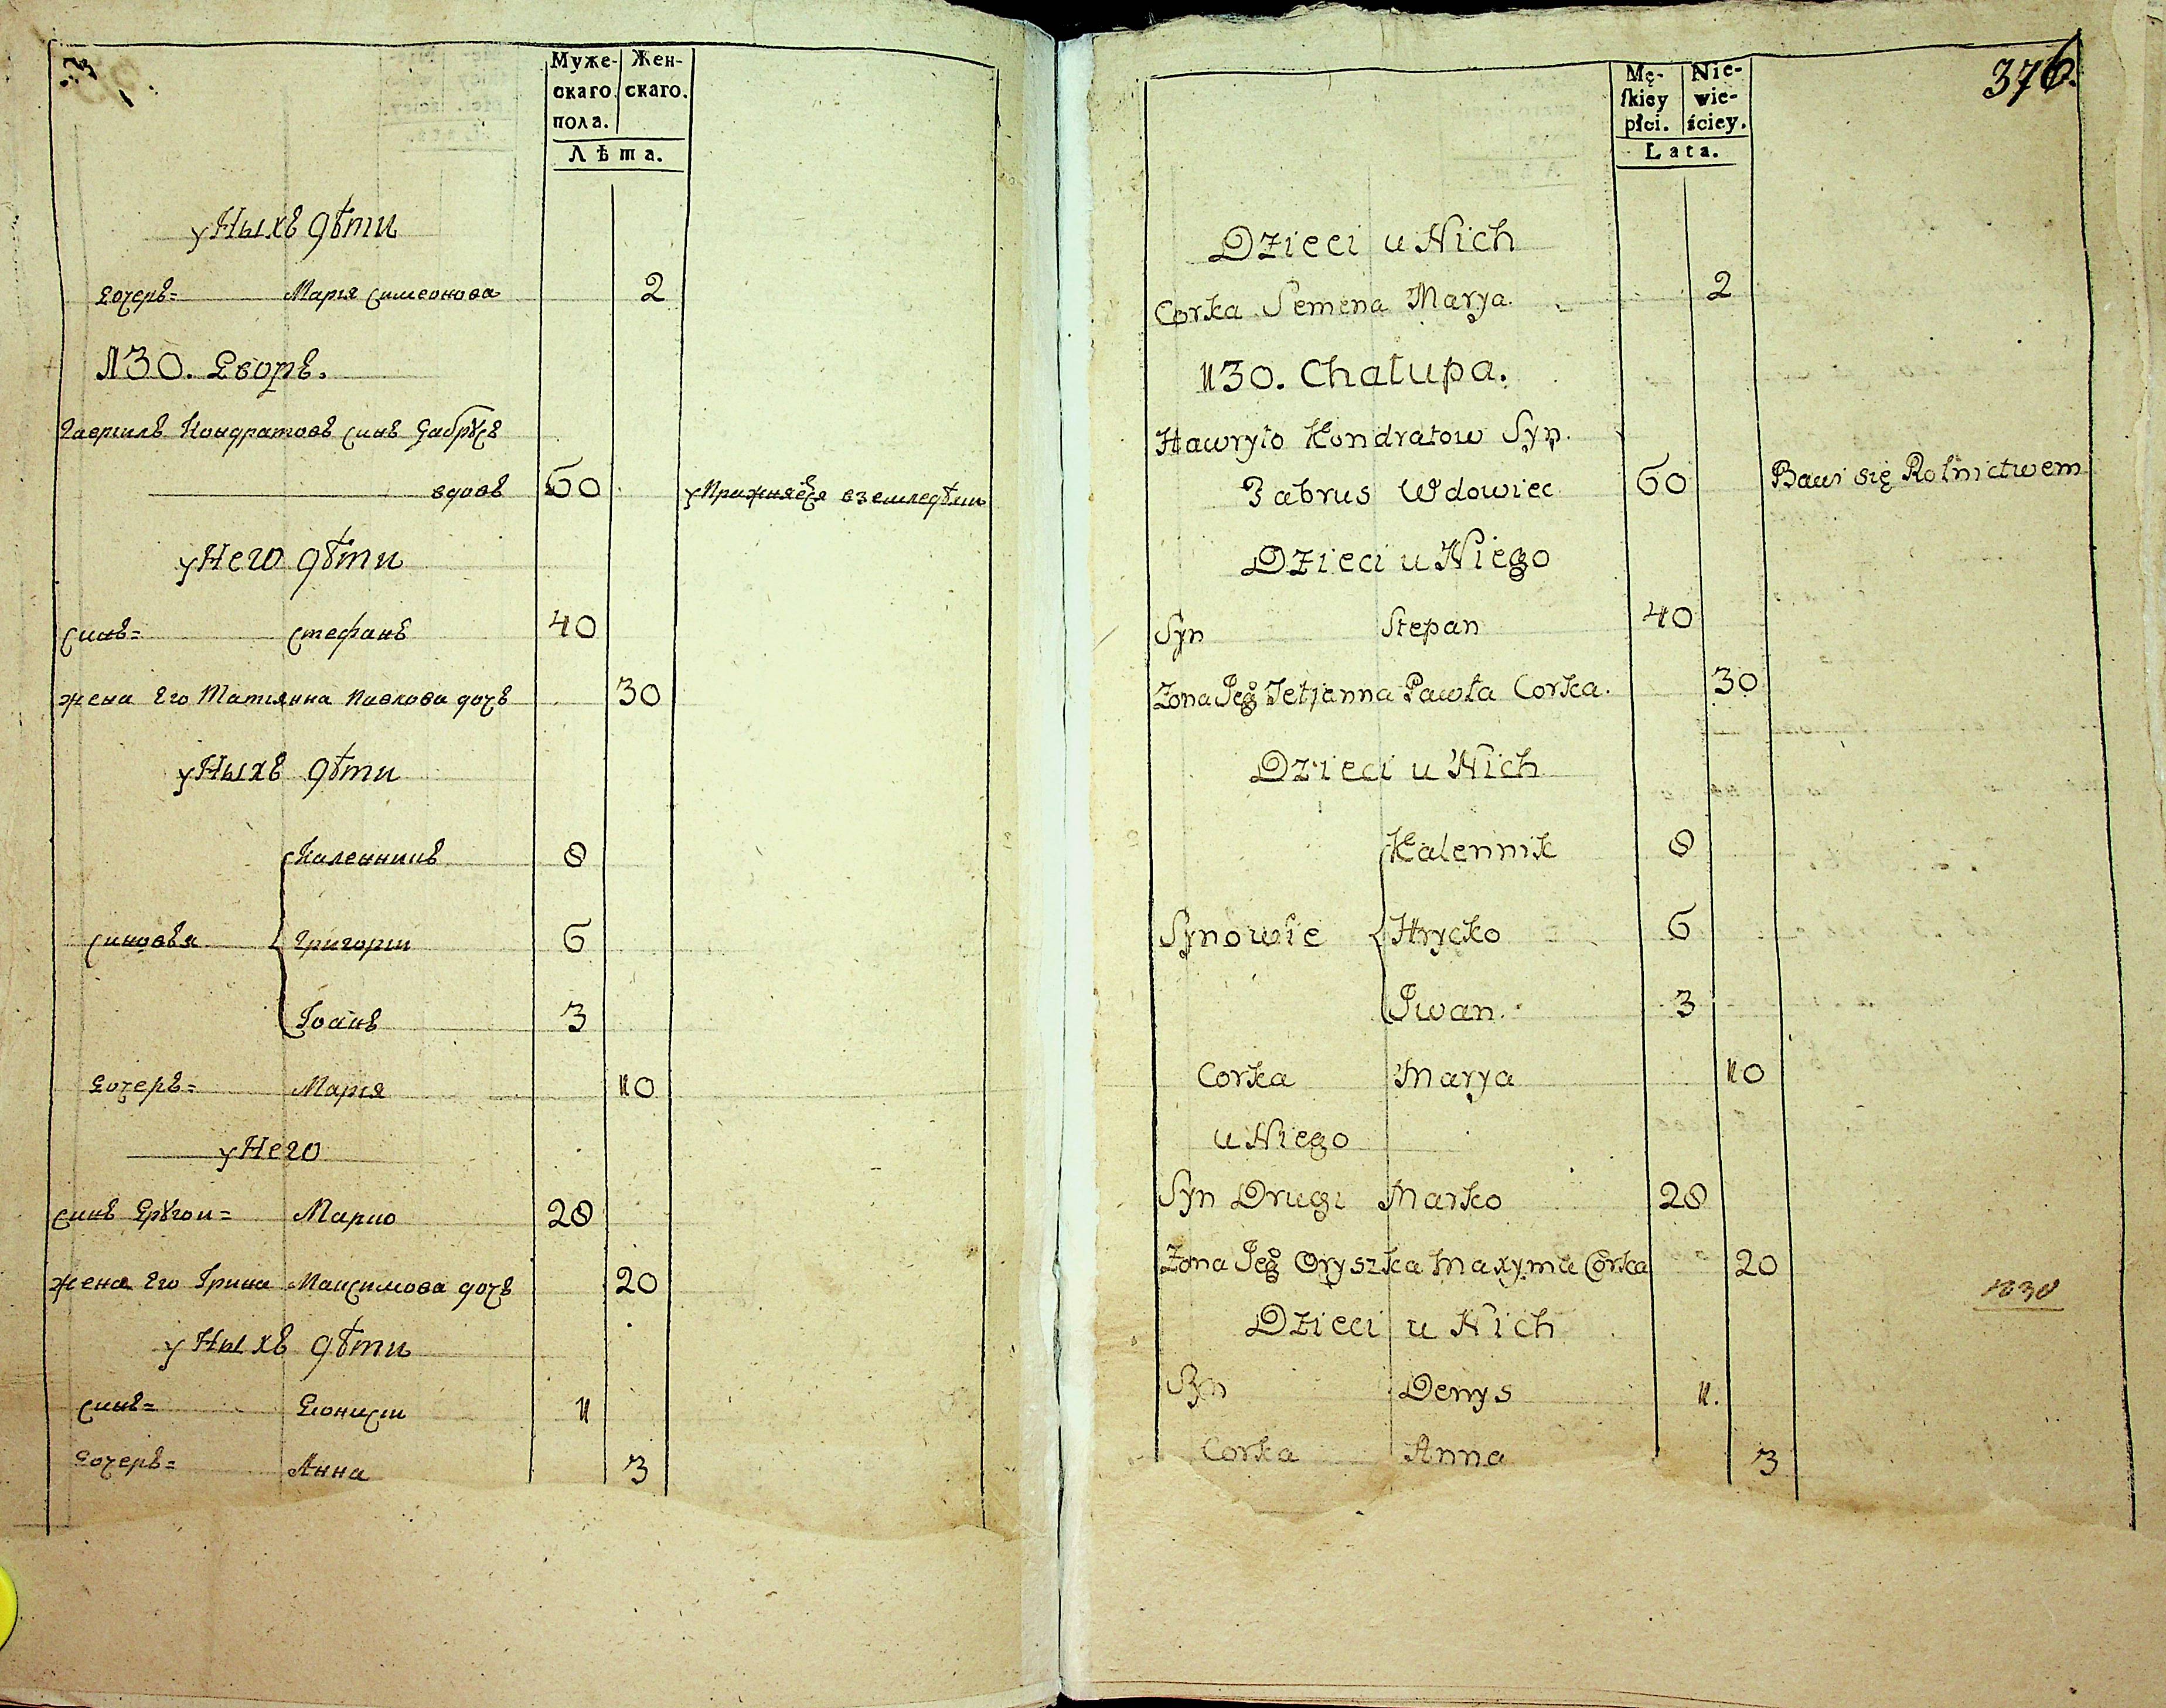 Муже- Жен-
скаго. скаго.
пола.
Лѣта.
у Ныхъ дѣти
Дочеръ= Марія Симеонова 2
N 30. Дворъ.
Гаврилъ Кондратовъ Синъ Забрусъ
вдовъ 60 упражняется в земледѣлии
у Него дѣти
Синъ= Стефанъ 40
жена Его Татіянна Павлова дочъ 30
у Ныхъ дѣти
Каленникъ 8
Синовья Григории 6
Іоанъ 3
Дочеръ= Марія 10
у Него
Синъ Другои= Марко 28
жена Его Ірина Максимова дочъ 20
у Ныхъ дѣти
Синъ= Дионисии 1
Дочеръ= Анна 3
376.
Mę- Nie-
skiey wie-
płci. ściey.
Lata.
Dzieci u Nich
Corka Semena Marya. 2
N 30. Chałupa.
Hawryło Kondratow Syn.
Zabrus Wdowiec 60 Bawi się Rolnictwem
Dzieci u Niego
Syn Stepan 40
Zona Jego Tetjanna Pawła Corka. 30
Dzieci u Nich
Kalennik 8
Synowie Hrycko 6
Iwan. 3
Corka Marya 10
u Niego
Syn Drugi Marko 28
Zona Jego Oryszka Maxyma Corka 20
1838
Dzieci u Nich
Syn Denys 1.
Corka Anna 3